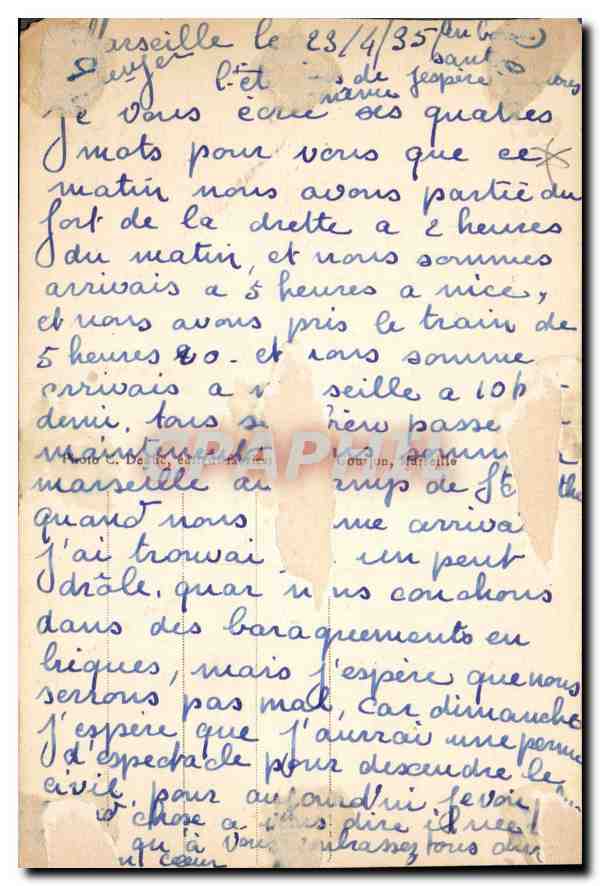 Marseille le 23/4/35 en bonne
santé
de j'espère
même
Je vous écrie ses quatres
mots pour vous que ce
matin nous avons partié du
fort de la drette a 2 heures
du matin, et nous sommes
arrivais a 5 heures a nice,
et nous avons pris le train de
5 heures 20 - et nous somme
arrivais a seille a 10h -
demi, tous passe
maintement
Photo C. Gourjon, Marseille
marseille au camp de St the
quand nous arriva
j'ai trouvai un peut
drôle, quar nous couchons
dans des baraquements en
briques, mais j'espère que nous
serrons pas mal, car dimanche
j'espère que j'aurrai une perm
d'espectacle pour dexendre le
civil, pour aujourd'hui je voie
chose a vous dire
qu'à vous embrassez tous
cœur